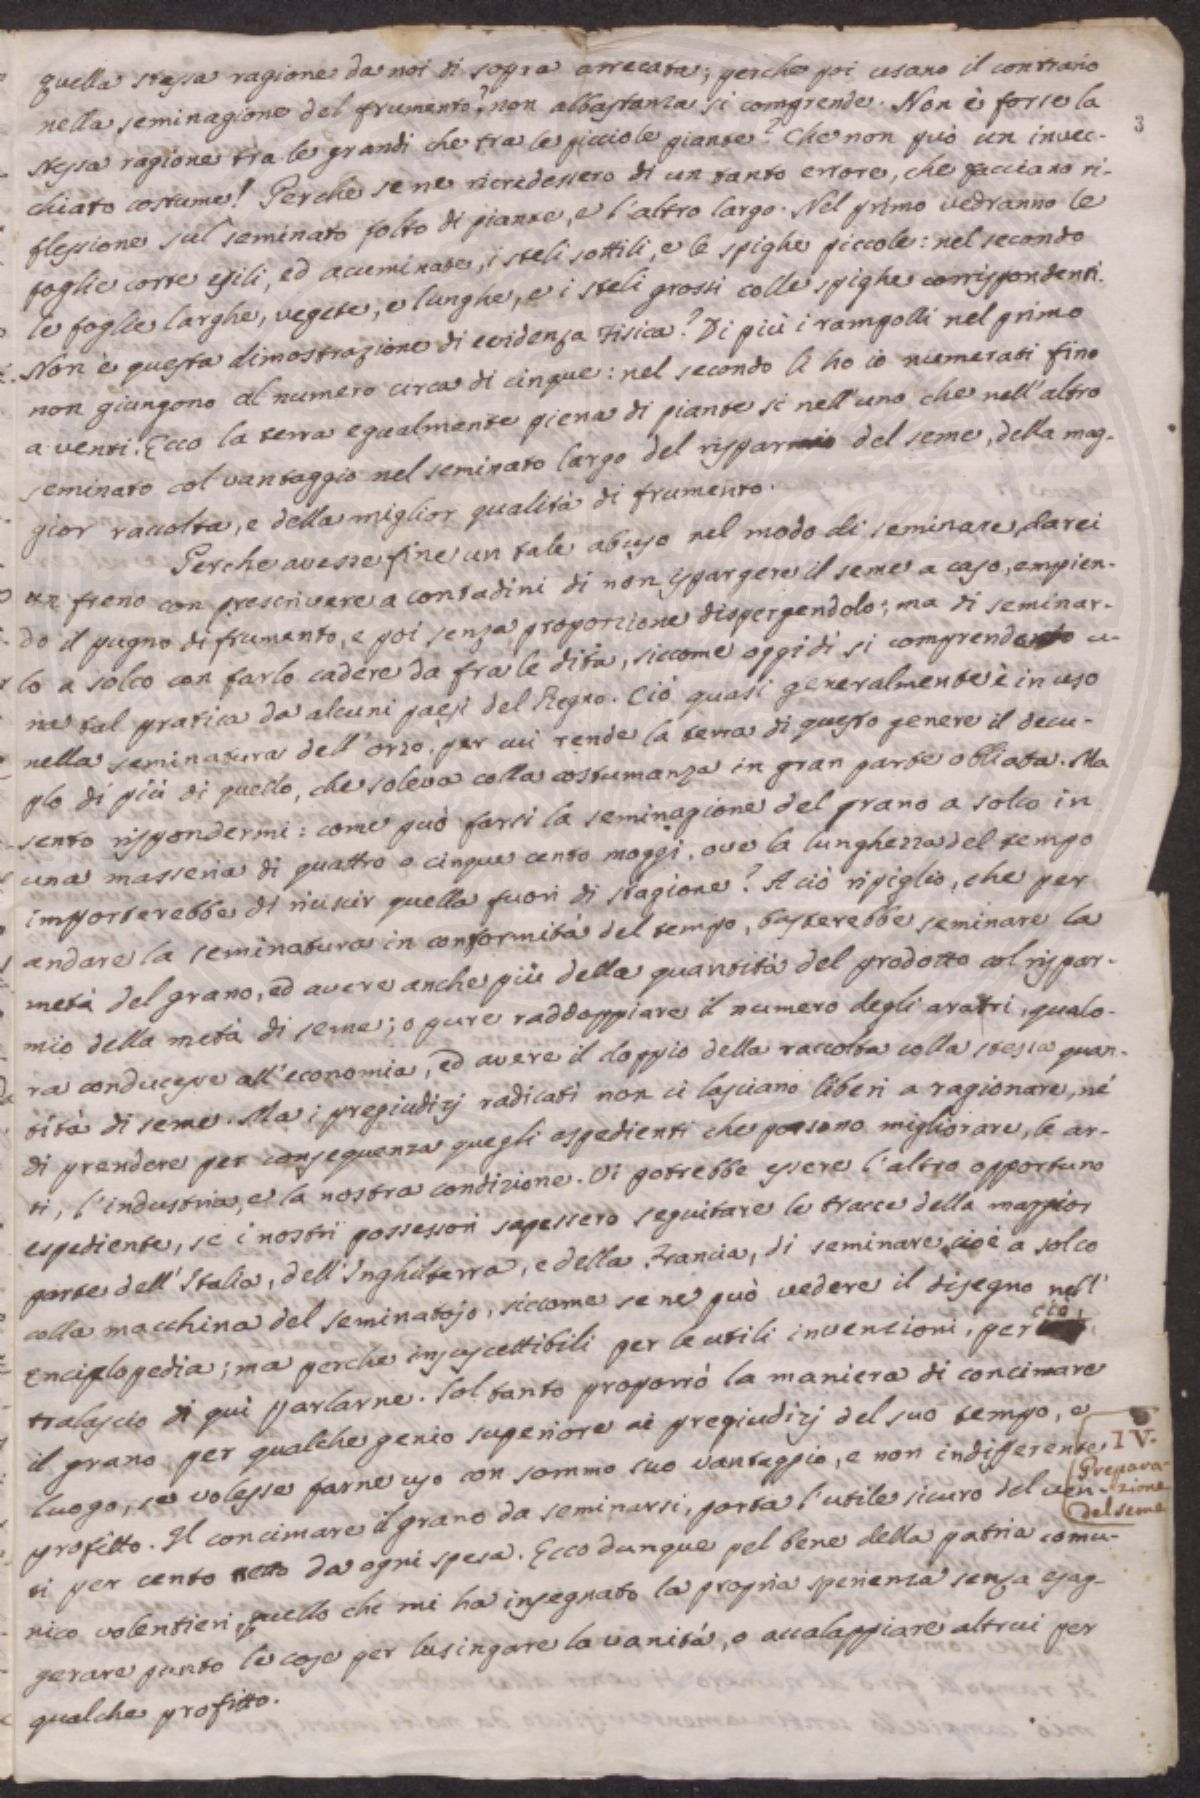 3
quella stessa ragione da noi di sopra arrecata; perche poi usano il contrario
nella seminagione del frumento, non abbastanza si comprende. Non è forse la
stessa ragione tra le grandi che tra le picciole piante? Che non può un invec-
chiato costume! Perche se ne ricredessero di un tanto errore, che facciano ri-
flessione sul seminato folto di piante, e l'altro largo. Nel primo vedranno le
foglie corte esili, ed acuminate, i steli sottili, e le spighe piccole: nel secondo
le foglie larghe, vegete, e lunghe, e i steli grossi colle spighe corrispondenti.
Non è questa dimostrazione di evidenza Fisica? Di più i rampolli nel primo
non giungono al numero circa di cinque: nel secondo li ho io numerati fino
a venti. Ecco la terra egualmente piena di piante sì nell'uno che nell'altro
seminato col vantaggio nel seminato largo del risparmio del seme, della mag-
gior raccolta, e della miglior qualità di frumento.
Perche avesse fine un tale abuso nel modo di seminare, darei
un freno con prescrivere a contadini di non ispargere il seme a caso, empien-
do il pugno di frumento, e poi senza proporzione dispergendolo; ma di seminar-
lo a solco con farlo cadere da fra le dita, siccome oggidì si comprende u-
na tal pratica da alcuni paesi del Regno. Ciò quasi generalmente è in uso
nella seminatura dell'orzo, per cui rende la terra di questo genere il decu-
plo di più di quello, che soleva colla costumanza in gran parte obliata. Ma
sento rispondermi: come può farsi la seminagione del grano a solco in
una masseria di quattro o cinque cento moggi, ove la lunghezza del tempo
importerebbe di riuscir quella fuori di stagione? A ciò ripiglio, che per
andare la seminatura in conformità del tempo, basterebbe seminare la
metà del grano, ed avere anche più della quantità del prodotto col rispar-
mio della metà di seme; o pure raddoppiare il numero degli aratri, qualo-
ra conducesse all'economia, ed avere il doppio della raccolta colla stessa quan-
tità di seme. Ma i pregiudizj radicati non ci lasciano liberi a ragionare, né
di prendere per conseguenza quegli espedienti che possono migliorare, le ar-
ti, l'industria, e la nostra condizione. Vi potrebbe essere l'altro opportuno
espediente, se i nostri possessori sapessero seguitare le tracce della maggior
parte dell'Italia, dell'Inghilterra, e della Francia, di seminare cioè a solco
colla macchina del seminatojo, siccome se ne può vedere il disegno nell'
Enciclopedia; ma perche insuscettibili per le utili invenzioni, per ciò,
tralascio di quì parlarne. Sol tanto proporrò la maniera di concimare
il grano per qualche genio superiore ai pregiudizj del suo tempo, e
luogo, se volesse farne uso con sommo suo vantaggio, e non indifferente
profitto. Il concimare il grano da seminarsi, porta l'utile sicuro del ven-
ti per cento netto da ogni spesa. Ecco dunque pel bene della patria comu-
nico volentieri, quello che mi ha insegnato la propria sperienza senza esag-
gerare punto le cose per lusingare la vanità, o accalappiare altrui per
qualche profitto.
IV.
Prepara-
zione
del seme